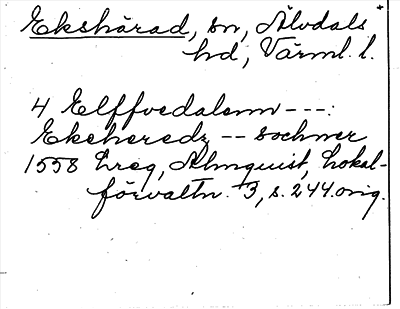 Ekshärad, sn, Älvdals
hd, Värml. l.
4 Elffuedalenn ---:
Ekeheredz -- sochner
1558 Lreg, Almquist, Lokal-
förvaltn. 3, s. 244. orig.